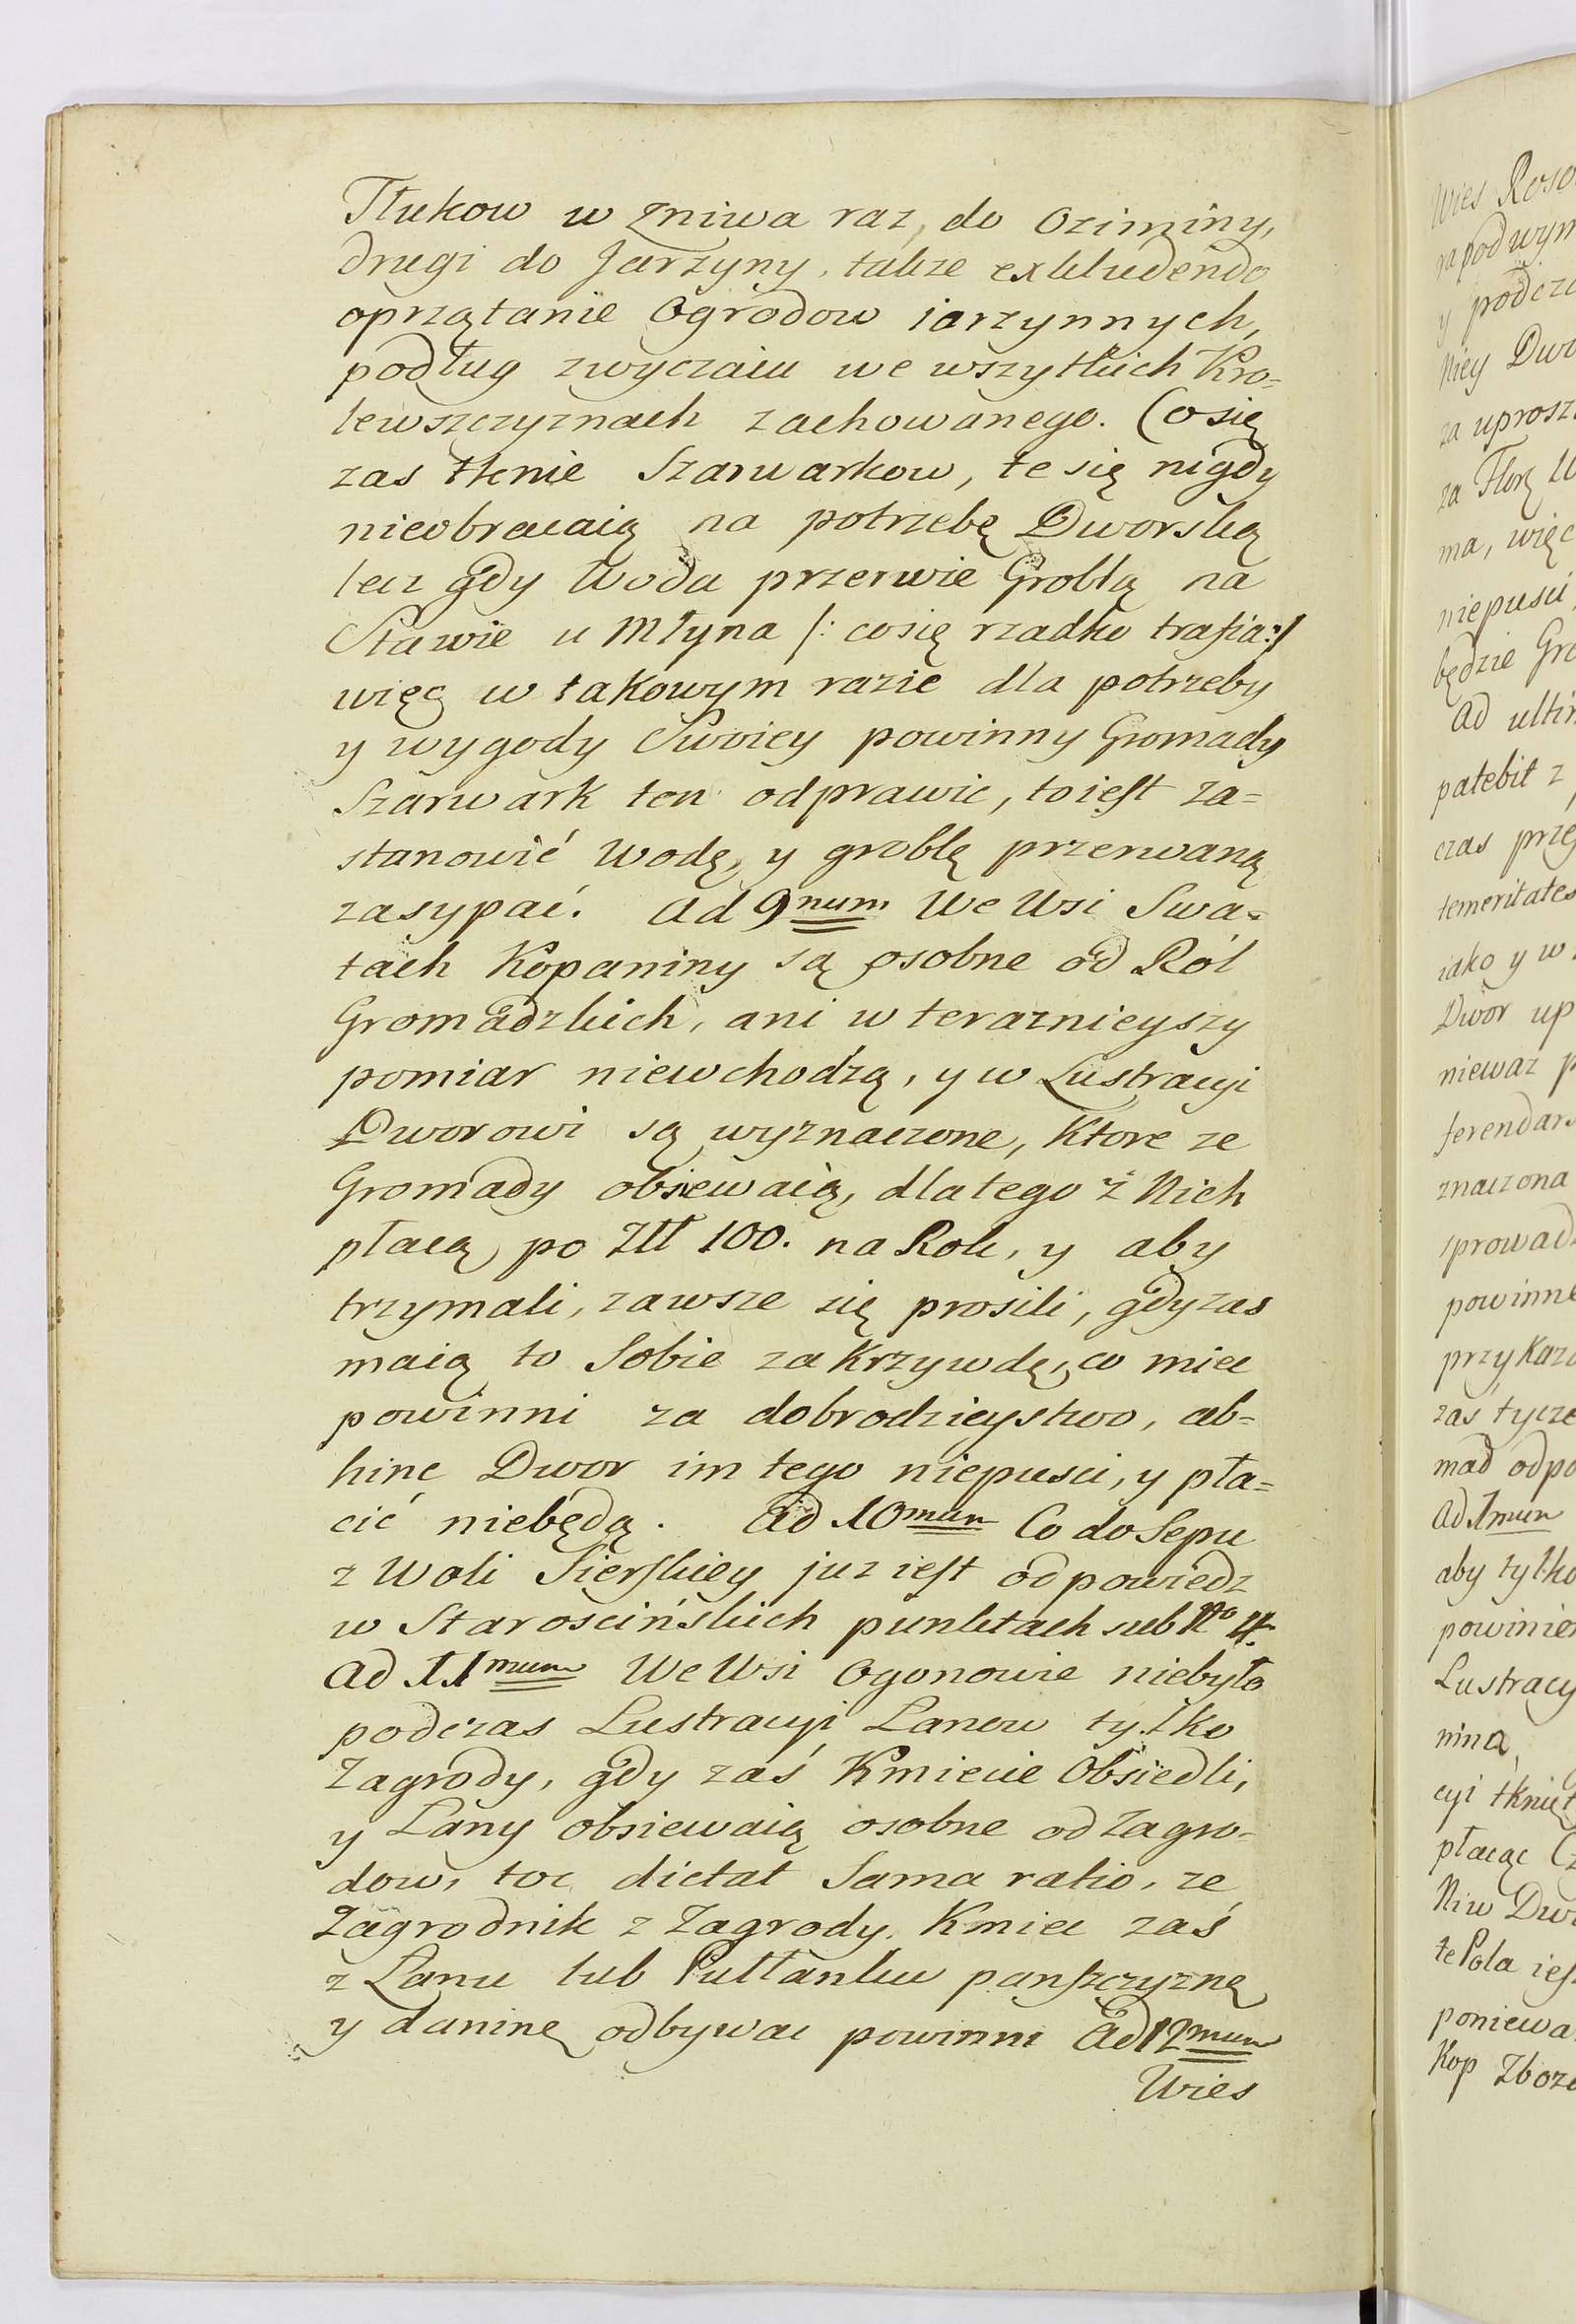 Tłukow w zniwa raz, do Oziminy,
drugi do Jarzyny, takze exkludendo
oprzątanie Ogrodow iarzynnych,
podług zwyczaiu we wszytkich Kro=
lewszczyznach zachowanego. Co się
zas tknie Szarwarkow, te się nigdy
nieobracaią na potrzebę Dworską
lecz gdy Woda przerwie Groblą na
Stawie u Młyna /: co się rzadko trafia:/
więc w takowym razie dla potrzeby
y wygody Swoiey powinny Gromady
Szarwark ten odprawic, toiest za=
stanowić Wodę, y groblę przerwaną
zasypać. Ad 9num We Wsi Swa=
tach Kopaniny są osobne od Ról
Gromadzkich, ani w teraznieyszy
pomiar niewchodzą, y w Lustracyi
Dworowi są wyznaczone, Ktore ze
Gromady obsiewaią, dlatego z Nich
płacą po Złł 100. na Rok, y aby
trzymali, zawsze się prosili, gdy zas
maią to Sobie za Krzywdę, co miec
powinni za dobrodzieystwo, ab=
hinc Dwor im tego niepusci, y pła=
cić niebędą. Ad 10mum Co do Sepu
z Woli Sierskiey juz iest odpowiedz
w Starościńskich punktach sub No 4.
Ad 11mum We Wsi Ogonowie niebyło
podczas Lustracyi Lanow tylko
Zagrody, gdy zaś Kmiecie Obsiedli,
y Lany obsiewaią osobne od Zagro=
dow, toc dictat Sama ratio, ze
Zagrodnik z Zagrody, Kmiec zaś
z Lanu lub Pułłanku panszczyznę
y daninę odbywac powinni Ad 12mum
Wies
Wies
y
Niey
za
ma, więc
niepusci
będzie
Ad
czas
temeritates
iako y w
Dwor
znaczona
powinne
zaś tycze
Ad 1mum
aby tylko
nina
płacąc
te Pola
Kop